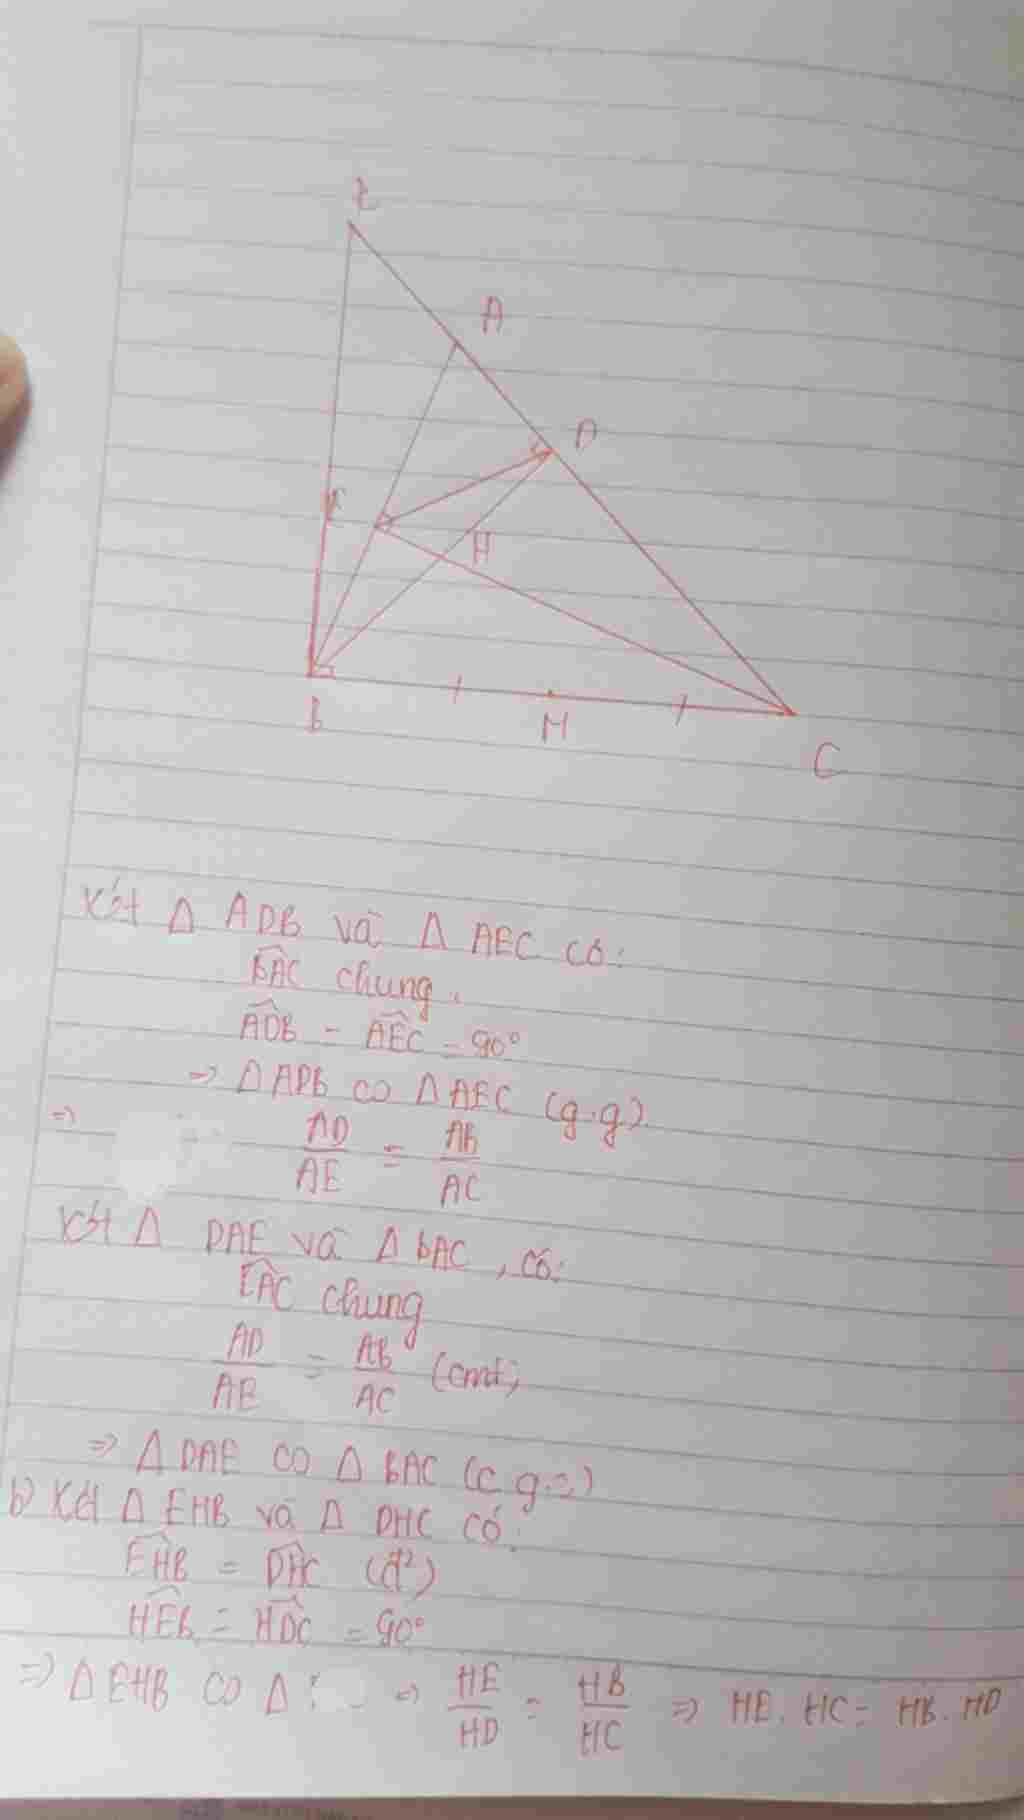 A
D
E
H
B
M
C
Xét Δ ADB và Δ AEC có:
BAC chung.
ADB = AEC = 90°
=> Δ ADB ∽ Δ AEC (g.g)
=> AD/AE = AB/AC
Xét Δ DAE và Δ BAC, có:
EAC chung
AD/AE = AB/AC (cmt)
=> Δ DAE ∽ Δ BAC (c.g.c)
b) Xét Δ EHB và Δ DHC có:
EHB = DHC (đ²)
HEB = HDC = 90°
=> Δ EHB ∽ Δ => HE/HD = HB/HC => HE.HC = HB.HD